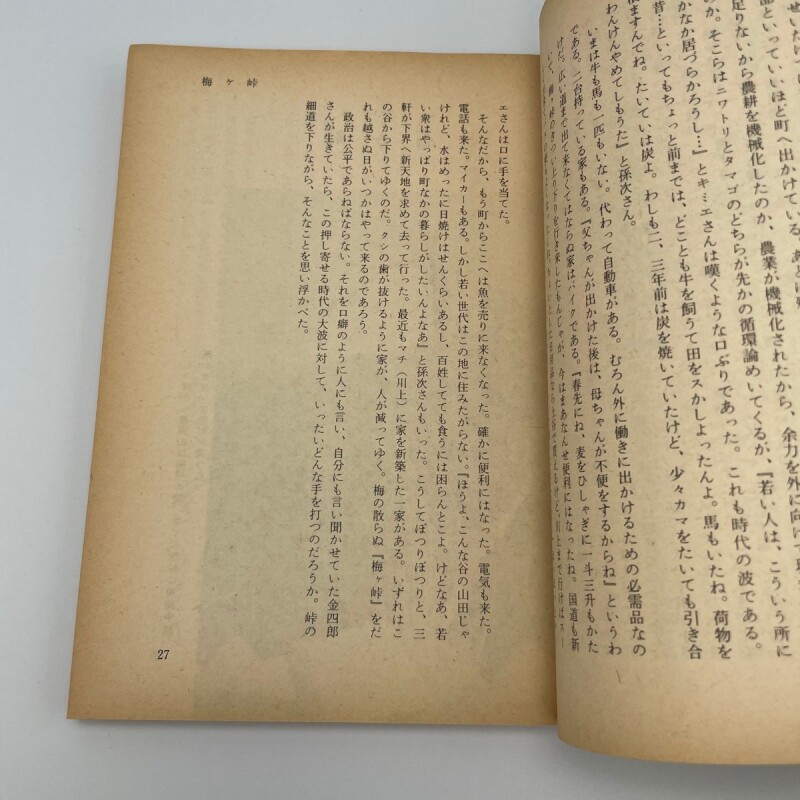 足りないから農耕を機械化したのか、農業が機械化されたから、余力を外に向けて
か。そこらはニワトリとタマゴのどちらが先かの循環論めいてくるが、『若い人は、こういう所に
かなか居づらかろうし…』とキミエさんは嘆くような口ぶりであった。これも時代の波である。
昔…といってもちょっと前までは、どことも牛を飼うて田をスかしよったんよ。馬もいたね。荷物を
ますんでね。たいていは炭よ。わしも二、三年前は炭を焼いていたけど、少々カマをたいても引き合
わんけんやめてしもうた』と孫次さん。
いまは牛も馬も一匹もいない。代わって自動車がある。むろん外に働きに出かけるための必需品なの
である。二台持っている家もある。『父ちゃんが出かけた後は、母ちゃんが不便をするからね』というわ
けだ。広い道まで出て来なくてはならぬ家はバイクである。『春先にね、麦をひしゃぎに一斗三升もかた
今はまあなんせ便利にはなったね。国道も新
梅ヶ峠
エさんは口に手を当てた。
そんなだから、もう町からここへは魚を売りに来なくなった。確かに便利にはなった。電気も来た。
電話も来た。マイカーもある。しかし若い世代はこの地に住みたがらない。『ほうよ、こんな谷の山田じゃ
けれど、水はめったに日焼けはせんくらいあるし、百姓してても食うには困らんとこよ。けどなあ、若
い衆はやっぱり町なかの暮らしがしたいんよなあ』と孫次さんもいった。こうしてぽつりぽつりと、三
軒が下界へ新天地を求めて去って行った。最近もマチ（川上）に家を新築した一家がある。いずれはこ
の谷から下りてゆくのだ。クシの歯が抜けるように家が、人が減ってゆく。梅の散らぬ『梅ヶ峠』をだ
れも越さぬ日がいつかはやって来るのであろう。
政治は公平であらねばならない。それを口癖のように人にも言い、自分にも言い聞かせていた金四郎
さんが生きていたら、この押し寄せる時代の大波に対して、いったいどんな手を打つのだろうか。峠の
細道を下りながら、そんなことを思い浮かべた。
27